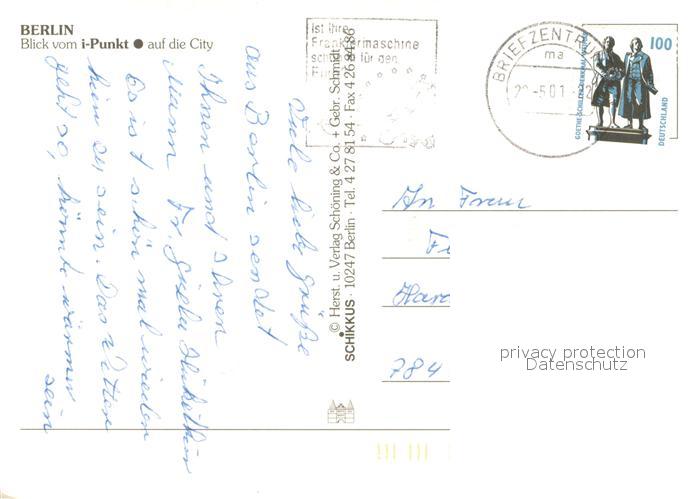 BERLIN
Blick vom i-Punkt ● auf die City
Viele liebe Grüße
aus Berlin sendet
Ihnen und Ihren
Mann Fr. Gisela
Es ist schön mal wieder
hier zu sein. Das Wetter
geht so, könnte wärmer
sein
© Herst. u. Verlag Schöning & Co. + Gebr. Schmidt
SCHIKKUS · 10247 Berlin · Tel. 4 27 81 54 · Fax 4 26 84 86
Ist Ihre
Frankiermaschine
für den
BRIEFZENTRU
ma
-5.01
100
GOETHE-SCHILLER-DENKMAL WEIMAR
DEUTSCHLAND
An Frau
784
privacy protection
Datenschutz